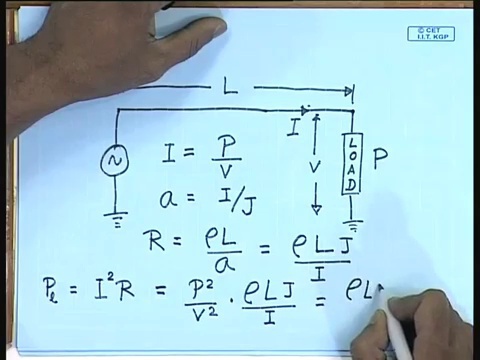 © CET
I.I.T. KGP
L
I
V
LOAD
P
~
I = P/V
a = I/J
R = ρL/a = ρLJ/I
Pₗ = I²R = P²/V² · ρLJ/I = ρL